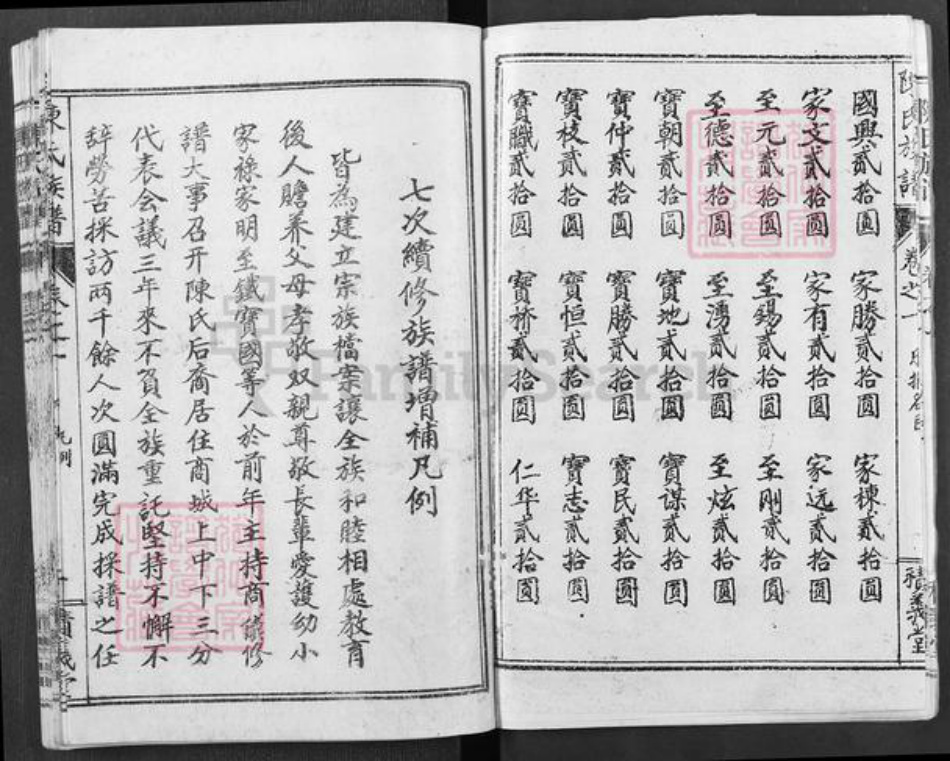 陳氏族譜 卷之一 積義堂
國興貳拾圓 家勝貳拾圓 家棟貳拾圓
家文貳拾圓 家有貳拾圓 家远貳拾圓
至元貳拾圓 至錫貳拾圓 至刚貳拾圓
至德貳拾圓 至湧貳拾圓 至炫貳拾圓
寶朝貳拾圓 寶地貳拾圓 寶谋貳拾圓
寶仲貳拾圓 寶勝貳拾圓 寶民貳拾圓
寶枝貳拾圓 寶恒貳拾圓 寶志貳拾圓
寶職貳拾圓 寶林貳拾圓 仁华貳拾圓
七次續修族譜增補凡例
皆為建立宗族檔案讓全族和睦相處教育
後人贍养父母孝敬双親尊敬長輩愛護幼小
家祿家明至鐵寶國等人於前年主持商儀修
譜大事召开陳氏后裔居住商城上中下三分
代表会議三年來不負全族重託堅持不懈不
辞勞苦採訪两千餘人次圓滿完成採譜之任
陳氏族譜
FamilySearch